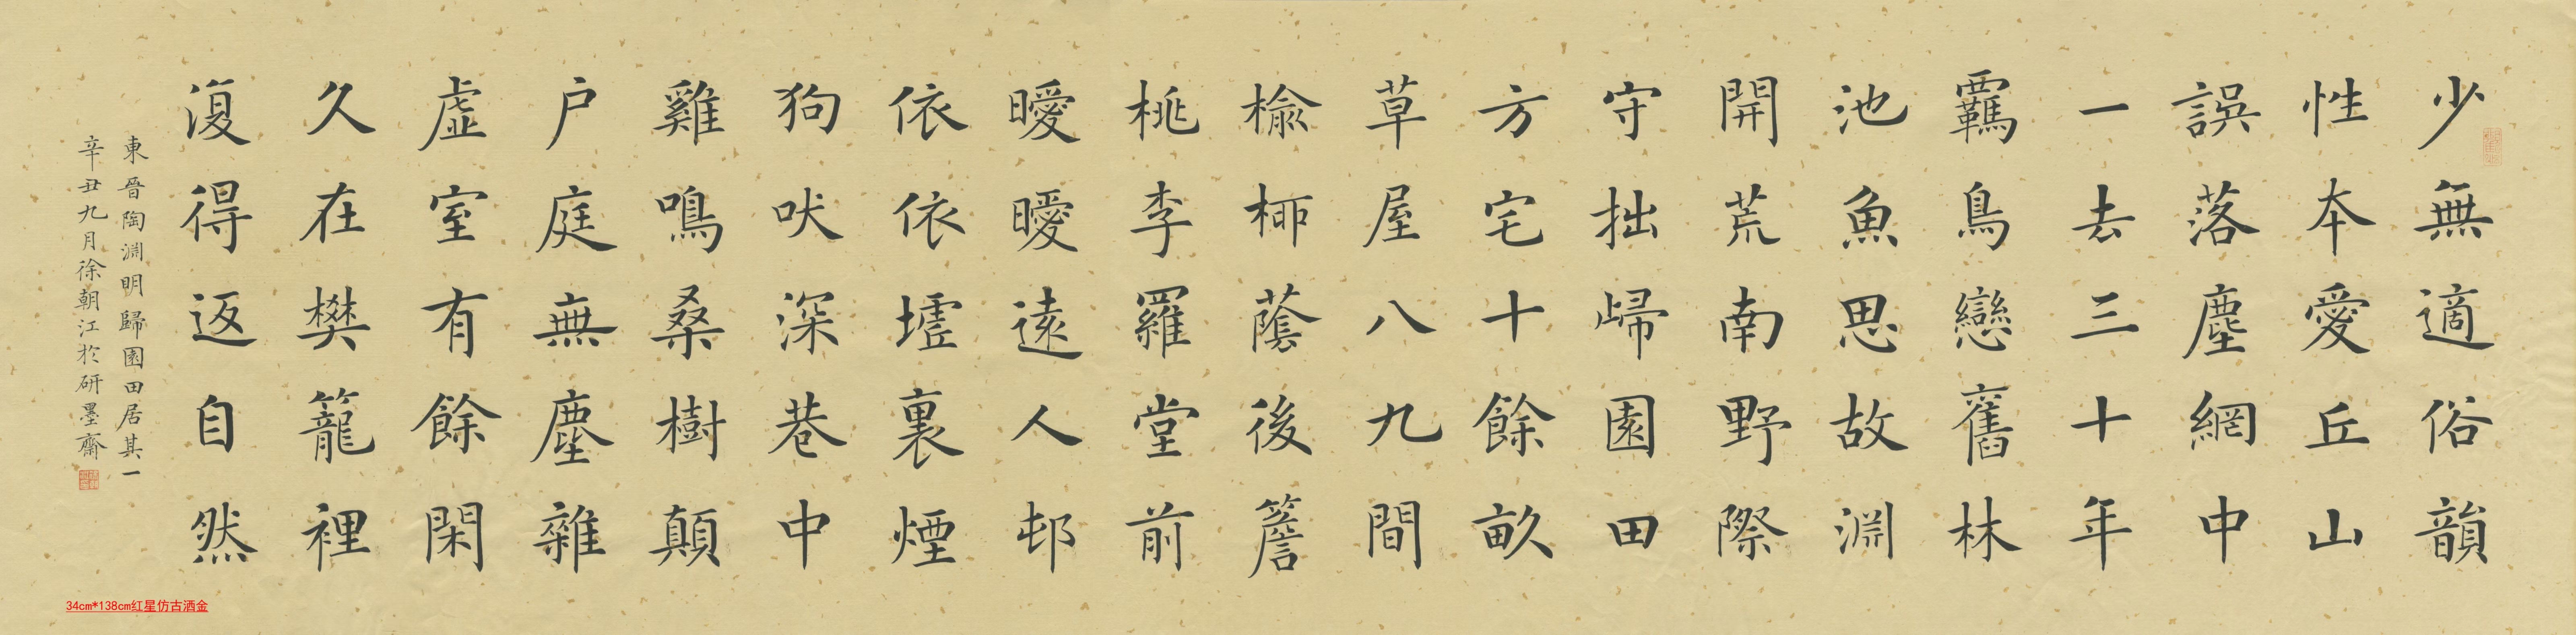 少無適俗韻
性本愛丘山
誤落塵網中
一去三十年
羈鳥戀舊林
池魚思故淵
開荒南野際
守拙歸園田
方宅十餘畝
草屋八九間
榆柳蔭後簷
桃李羅堂前
曖曖遠人邨
依依墟裏煙
狗吠深巷中
雞鳴桑樹顛
户庭無塵雜
虛室有餘閑
久在樊籠裡
復得返自然
東晉陶淵明歸園田居其一
辛丑九月徐朝江於研墨齋
34cm*138cm红星仿古洒金